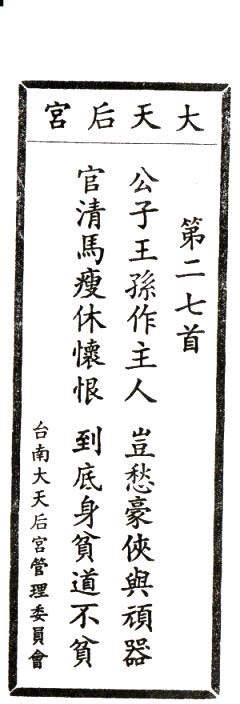 大天后宮
第二七首
公子王孫作主人　豈愁豪俠與頑器
官清馬瘦休懷恨　到底身貧道不貧
台南大天后宮管理委員會